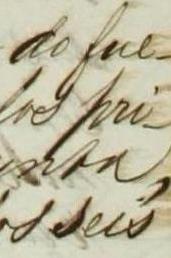 do fue-
los pri-
unta
os seis